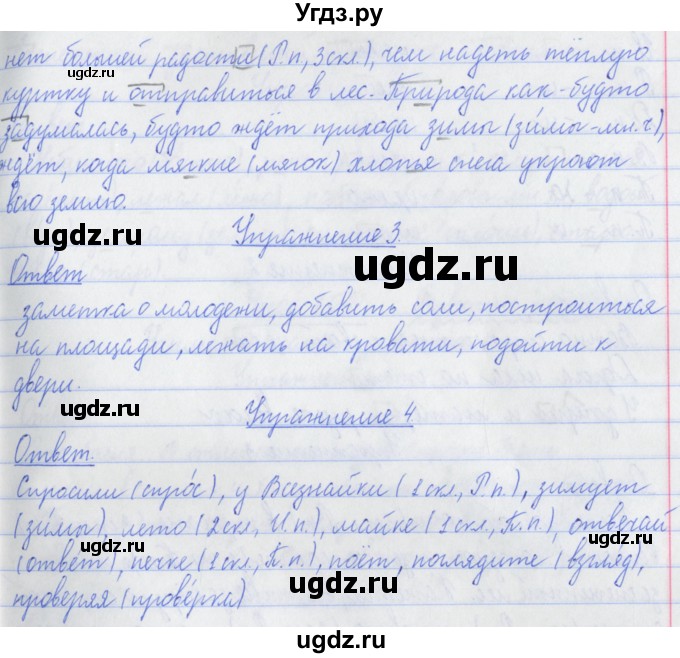 Угдз.ру
нет большей радости (Р.п, 3скл.), чем надеть тёплую
куртку и отправиться в лес. Природа как-будто
задумалась, будто ждёт прихода зимы (зи́мы-мн.ч),
ждёт, когда мягкие (мягок) хлопья снега укроют
всю землю.
ugdz.ru ugdz.ru
ugdz.ru
Упражнение 3.
ugdz.ru
Ответ
заметка о молодежи, добавить соли, построиться
на площади, лежать на кровати, подойти к
двери.
ugdz.ru
ugdz.ru
Упражнение 4.
Ответ.
Спросили (спро́с), у Вазнайки (1скл., Р.п.), зимует
(зи́мы), лето (2скл, И.п.), майке (1скл., П.п.), отвечай
ugdz.ru ugdz.ru
(ответ), печке (1скл., П.п.), поёт, поглядите (взгляд),
ugdz.ru
проверяя (прове́рка)
ugdz.ru
ugdz.ru